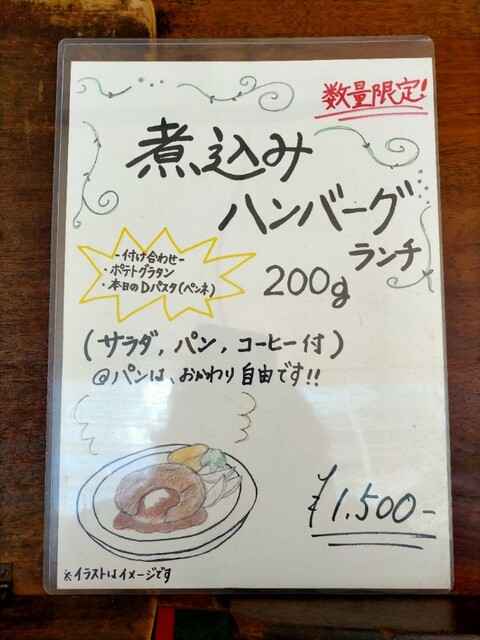 数量限定!
煮込み
ハンバーグ
ランチ
200g
-付け合わせ-
・ポテトグラタン
・本日のDパスタ(ペンネ)
(サラダ,パン,コーヒー付)
@パンは、おかわり自由です!!
¥1.500-
※イラストはイメージです